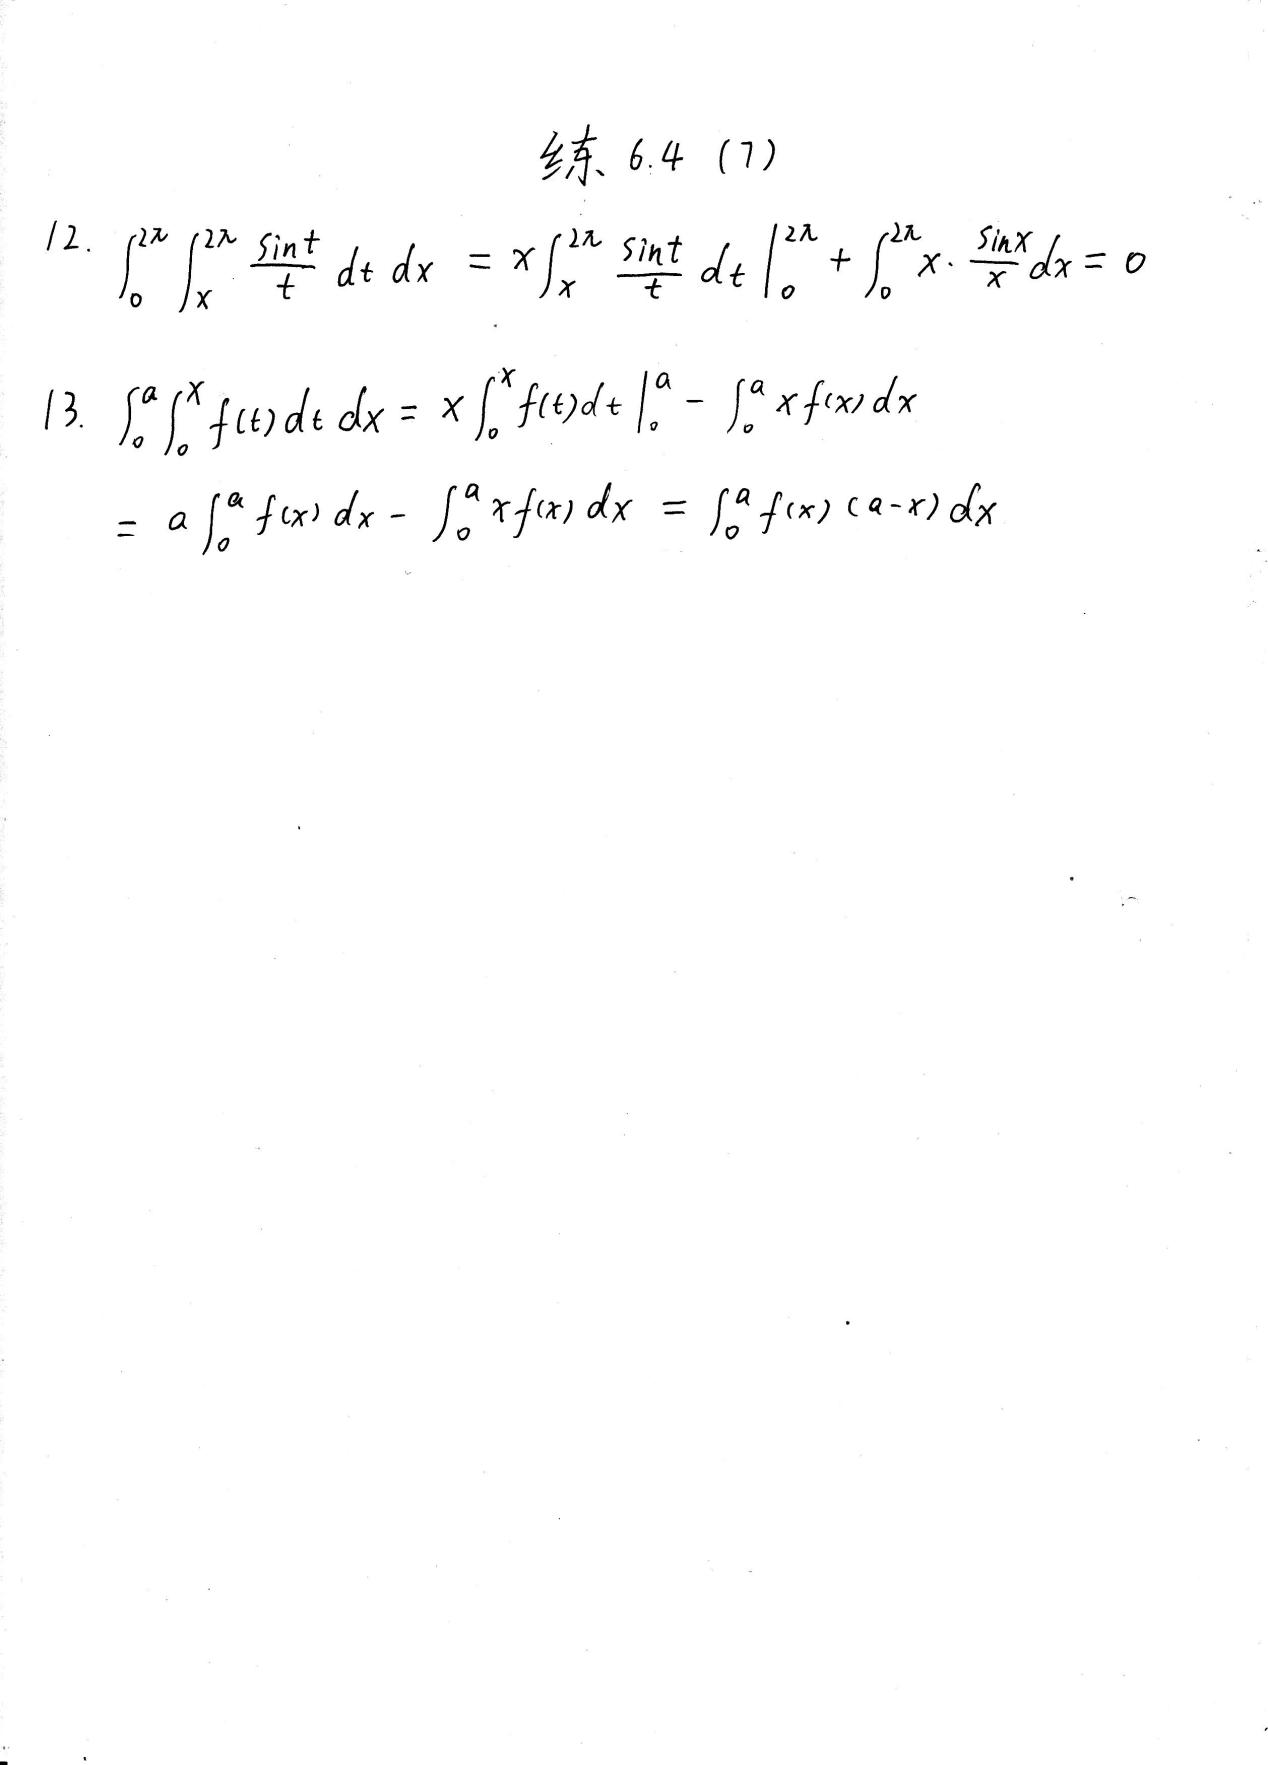 练 6.4 (7)
12. ∫₀^{2π} ∫ₓ^{2π} sint/t dt dx = x∫ₓ^{2π} sint/t dt |₀^{2π} + ∫₀^{2π} x· sinx/x dx = 0
13. ∫₀^a ∫₀^x f(t)dt dx = x∫₀^x f(t)dt |₀^a - ∫₀^a xf(x)dx
= a∫₀^a f(x)dx - ∫₀^a xf(x)dx = ∫₀^a f(x)(a-x)dx